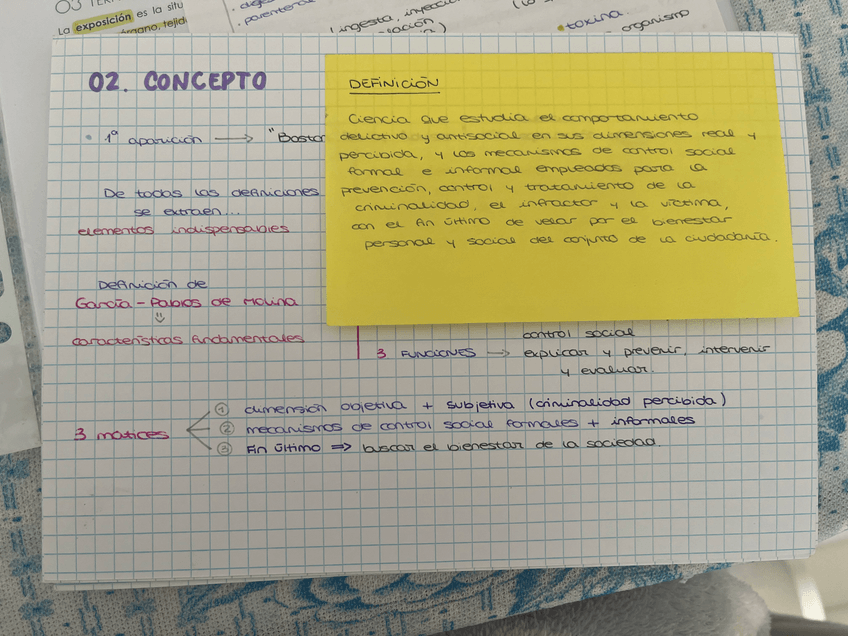 La exposición es la situ
órgano, tejid
· parentera
(ingesta, inyección
toxina.
organismo
02. CONCEPTO
• 1ª aparición → "Bastar
De todas las definiciones
se extraen...
elementos indispensables
Definición de
García-Pablos de Molina
características fundamentales
DEFINICIÓN
Ciencia que estudia el comportamiento
delictivo y antisocial en sus dimensiones real y
percibida, y los mecanismos de control social
formal e informal empleados para la
prevención, control y tratamiento de la
criminalidad, el infractor y la víctima,
con el fin último de velar por el bienestar
personal y social del conjunto de la ciudadanía.
control social
3 FUNCIONES → explicar y prevenir, intervenir
y evaluar.
3 matices
① dimensión objetiva + subjetiva (criminalidad percibida)
② mecanismos de control social formales + informales
③ Fin último => buscar el bienestar de la sociedad.